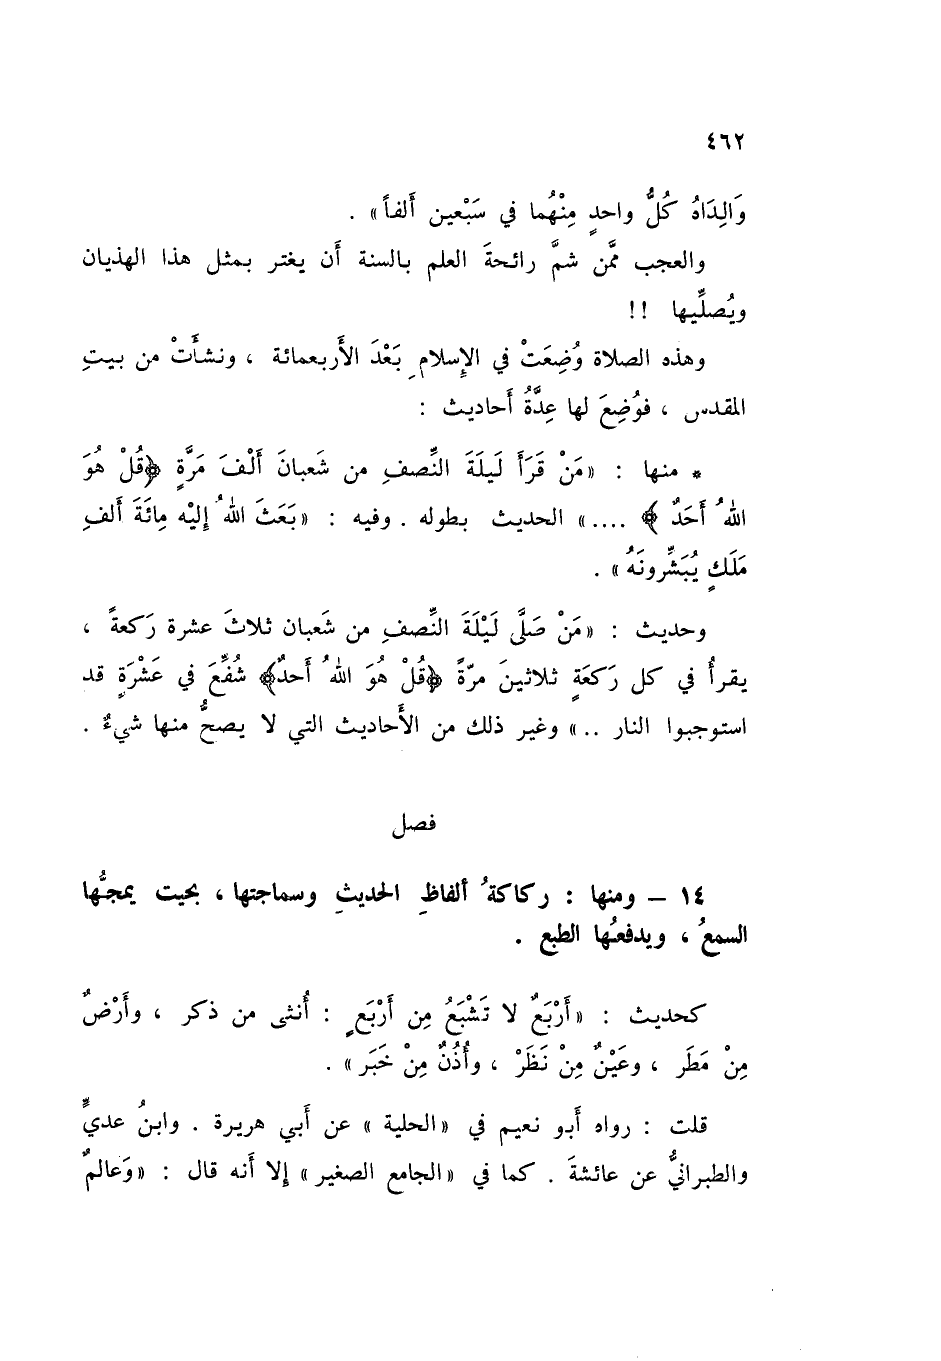 ٤٦٢
وَالِدَاهُ كُلُّ واحدٍ مِنْهُما في سَبْعين أَلفاً» .
والعجب ممَّن شمَّ رائحةَ العلم بالسنة أَن يغتر بمثل هذا الهذيان
ويُصلِّيها !!
وهذه الصلاة وُضِعَتْ في الإِسلامِ بَعْدَ الأَربعمائة ، ونشأَتْ من بيتِ
المقدس ، فوُضِعَ لها عِدَّةُ أَحاديث :
* منها : «مَنْ قَرَأَ لَيلَةَ النِّصفِ من شَعبانَ أَلْفَ مَرَّةٍ ﴿قُلْ هُوَ
اللهُ أَحَدٌ ﴾ ....» الحديث بطوله . وفيه : «بَعَثَ اللهُ إِليْه مِائَةَ أَلفِ
مَلَكٍ يُبَشِّرونَهُ» .
وحديث : «مَنْ صَلَّى لَيْلَةَ النِّصفِ من شَعبان ثلاثَ عشرة رَكعةً ،
يقرأُ في كل رَكعَةٍ ثلاثينَ مرّةً ﴿قُلْ هُوَ اللهُ أَحدٌ﴾ شُفِّعَ في عَشْرَةٍ قد
استوجبوا النار ..» وغير ذلك من الأَحاديث التي لا يصحُّ منها شيءٌ .
فصل
١٤ – ومنها : ركاكةُ ألفاظِ الحديثِ وسماجتها ، بحيت يمجُّها
السمعُ ، ويدفعُها الطبع .
كحديث : «أَرْبَعٌ لا تَشْبَعُ مِن أَرْبَعٍ : أُنثى من ذكر ، وأَرْضٌ
مِنْ مَطَر ، وعَيْنٌ مِنْ نَظَرْ ، وأُذُنٌ مِنْ خَبَر» .
قلت : رواه أَبو نعيم في «الحلية» عن أَبي هريرة . وابنُ عديٍّ
والطبرانيُّ عن عائشةَ . كما في «الجامع الصغير» إِلا أَنه قال : «وَعالمٌ